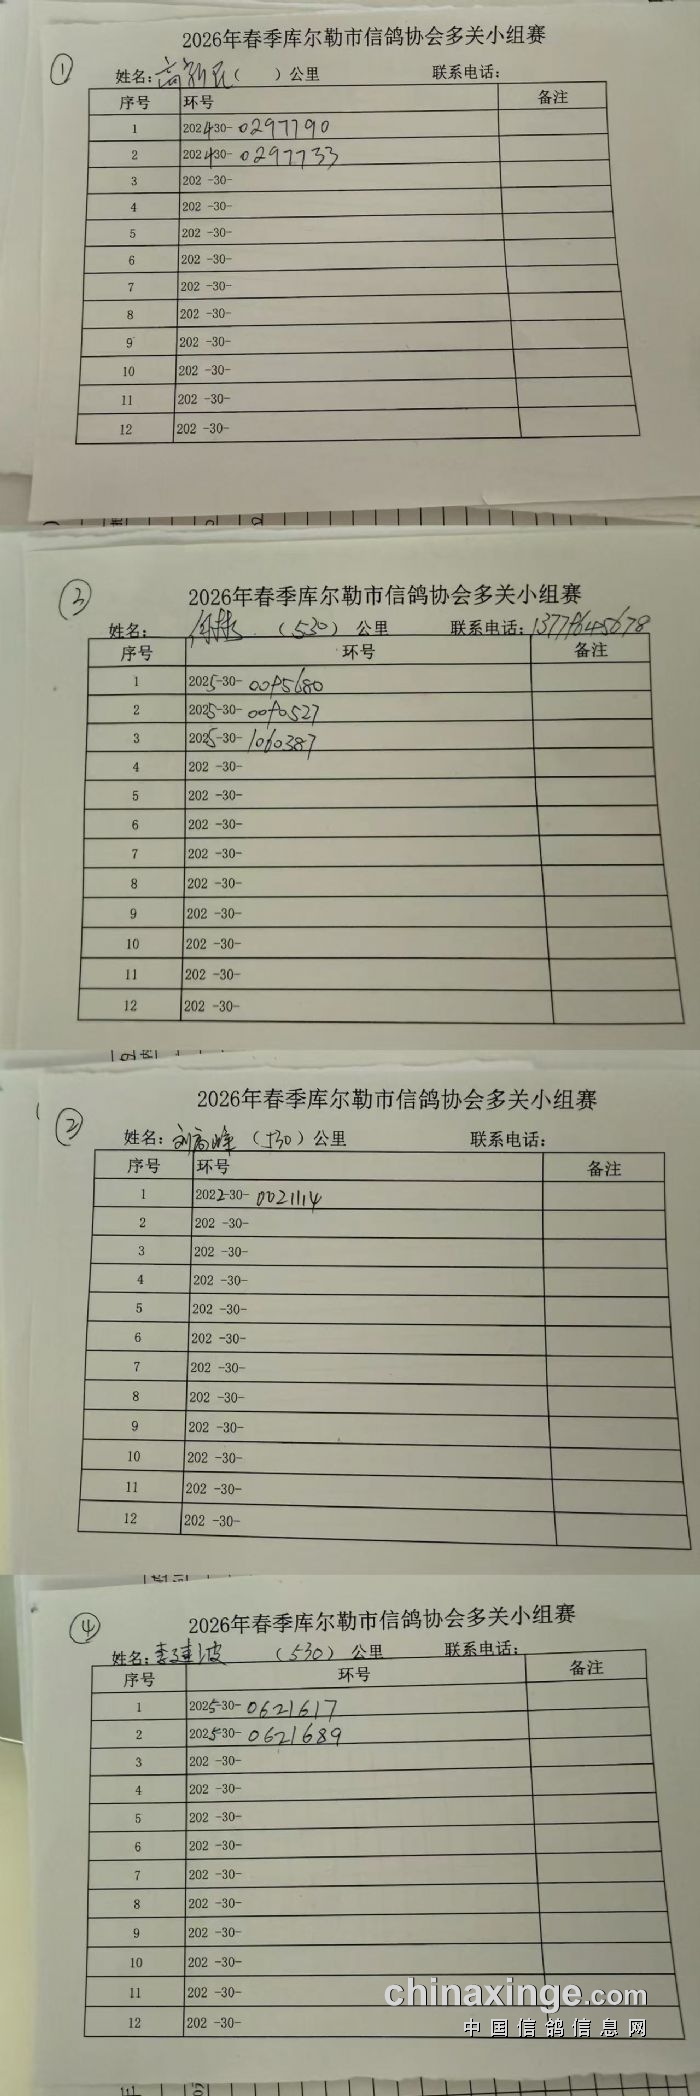 ①
2026年春季库尔勒市信鸽协会多关小组赛
姓名:高新民( )公里 联系电话:
序号 环号 备注
1 2024-30-0297790
2 2024-30-0297733
3 202 -30-
4 202 -30-
5 202 -30-
6 202 -30-
7 202 -30-
8 202 -30-
9 202 -30-
10 202 -30-
11 202 -30-
12 202 -30-
③
2026年春季库尔勒市信鸽协会多关小组赛
姓名: (530)公里 联系电话:
序号 环号 备注
1 2025-30-
2 2025-30-
3 2025-30-1060387
4 202 -30-
5 202 -30-
6 202 -30-
7 202 -30-
8 202 -30-
9 202 -30-
10 202 -30-
11 202 -30-
12 202 -30-
②
2026年春季库尔勒市信鸽协会多关小组赛
姓名:刘高峰 (530)公里 联系电话:
序号 环号 备注
1 2022-30-0021114
2 202 -30-
3 202 -30-
4 202 -30-
5 202 -30-
6 202 -30-
7 202 -30-
8 202 -30-
9 202 -30-
10 202 -30-
11 202 -30-
12 202 -30-
④
2026年春季库尔勒市信鸽协会多关小组赛
姓名:李建波 (530)公里 联系电话:
序号 环号 备注
1 2025-30-0621617
2 2025-30-0621689
3 202 -30-
4 202 -30-
5 202 -30-
6 202 -30-
7 202 -30-
8 202 -30-
9 202 -30-
10 202 -30-
11 202 -30-
12 202 -30-
chinaxinge.com
中国信鸽信息网